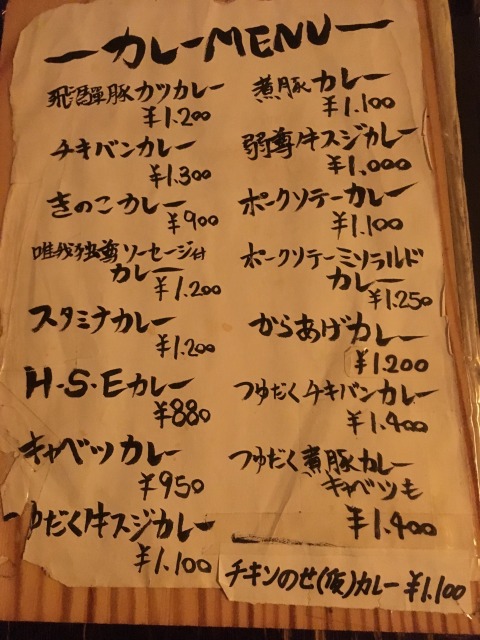 カレーMENU
飛騨豚カツカレー
¥1.200
チキバンカレー
¥1.300
きのこカレー
¥900
唯我独尊ソーセージ付
カレー
¥1.200
スタミナカレー
¥1.200
H・S・Eカレー
¥880
キャベツカレー
¥950
ゆだく牛スジカレー
¥1.100
煮豚カレー
¥1.100
牛スジカレー
¥1.000
ポークソテーカレー
¥1.100
ポークソテーミソラルド
カレー
¥1.250
からあげカレー
¥1.200
つゆだくチキバンカレー
¥1.400
つゆだく煮豚カレー
キャベツも
¥1.400
チキンのせ(仮)カレー ¥1.100